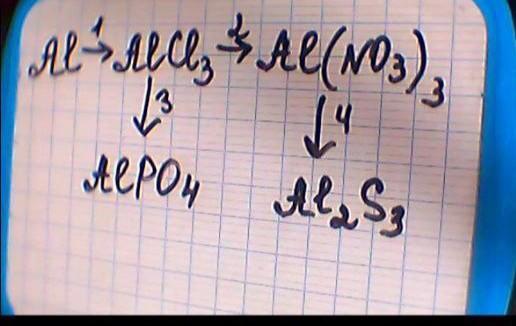 Al 1→ AlCl3 2→ Al(NO3)3
↓3 ↓4
AlPO4 Al2S3